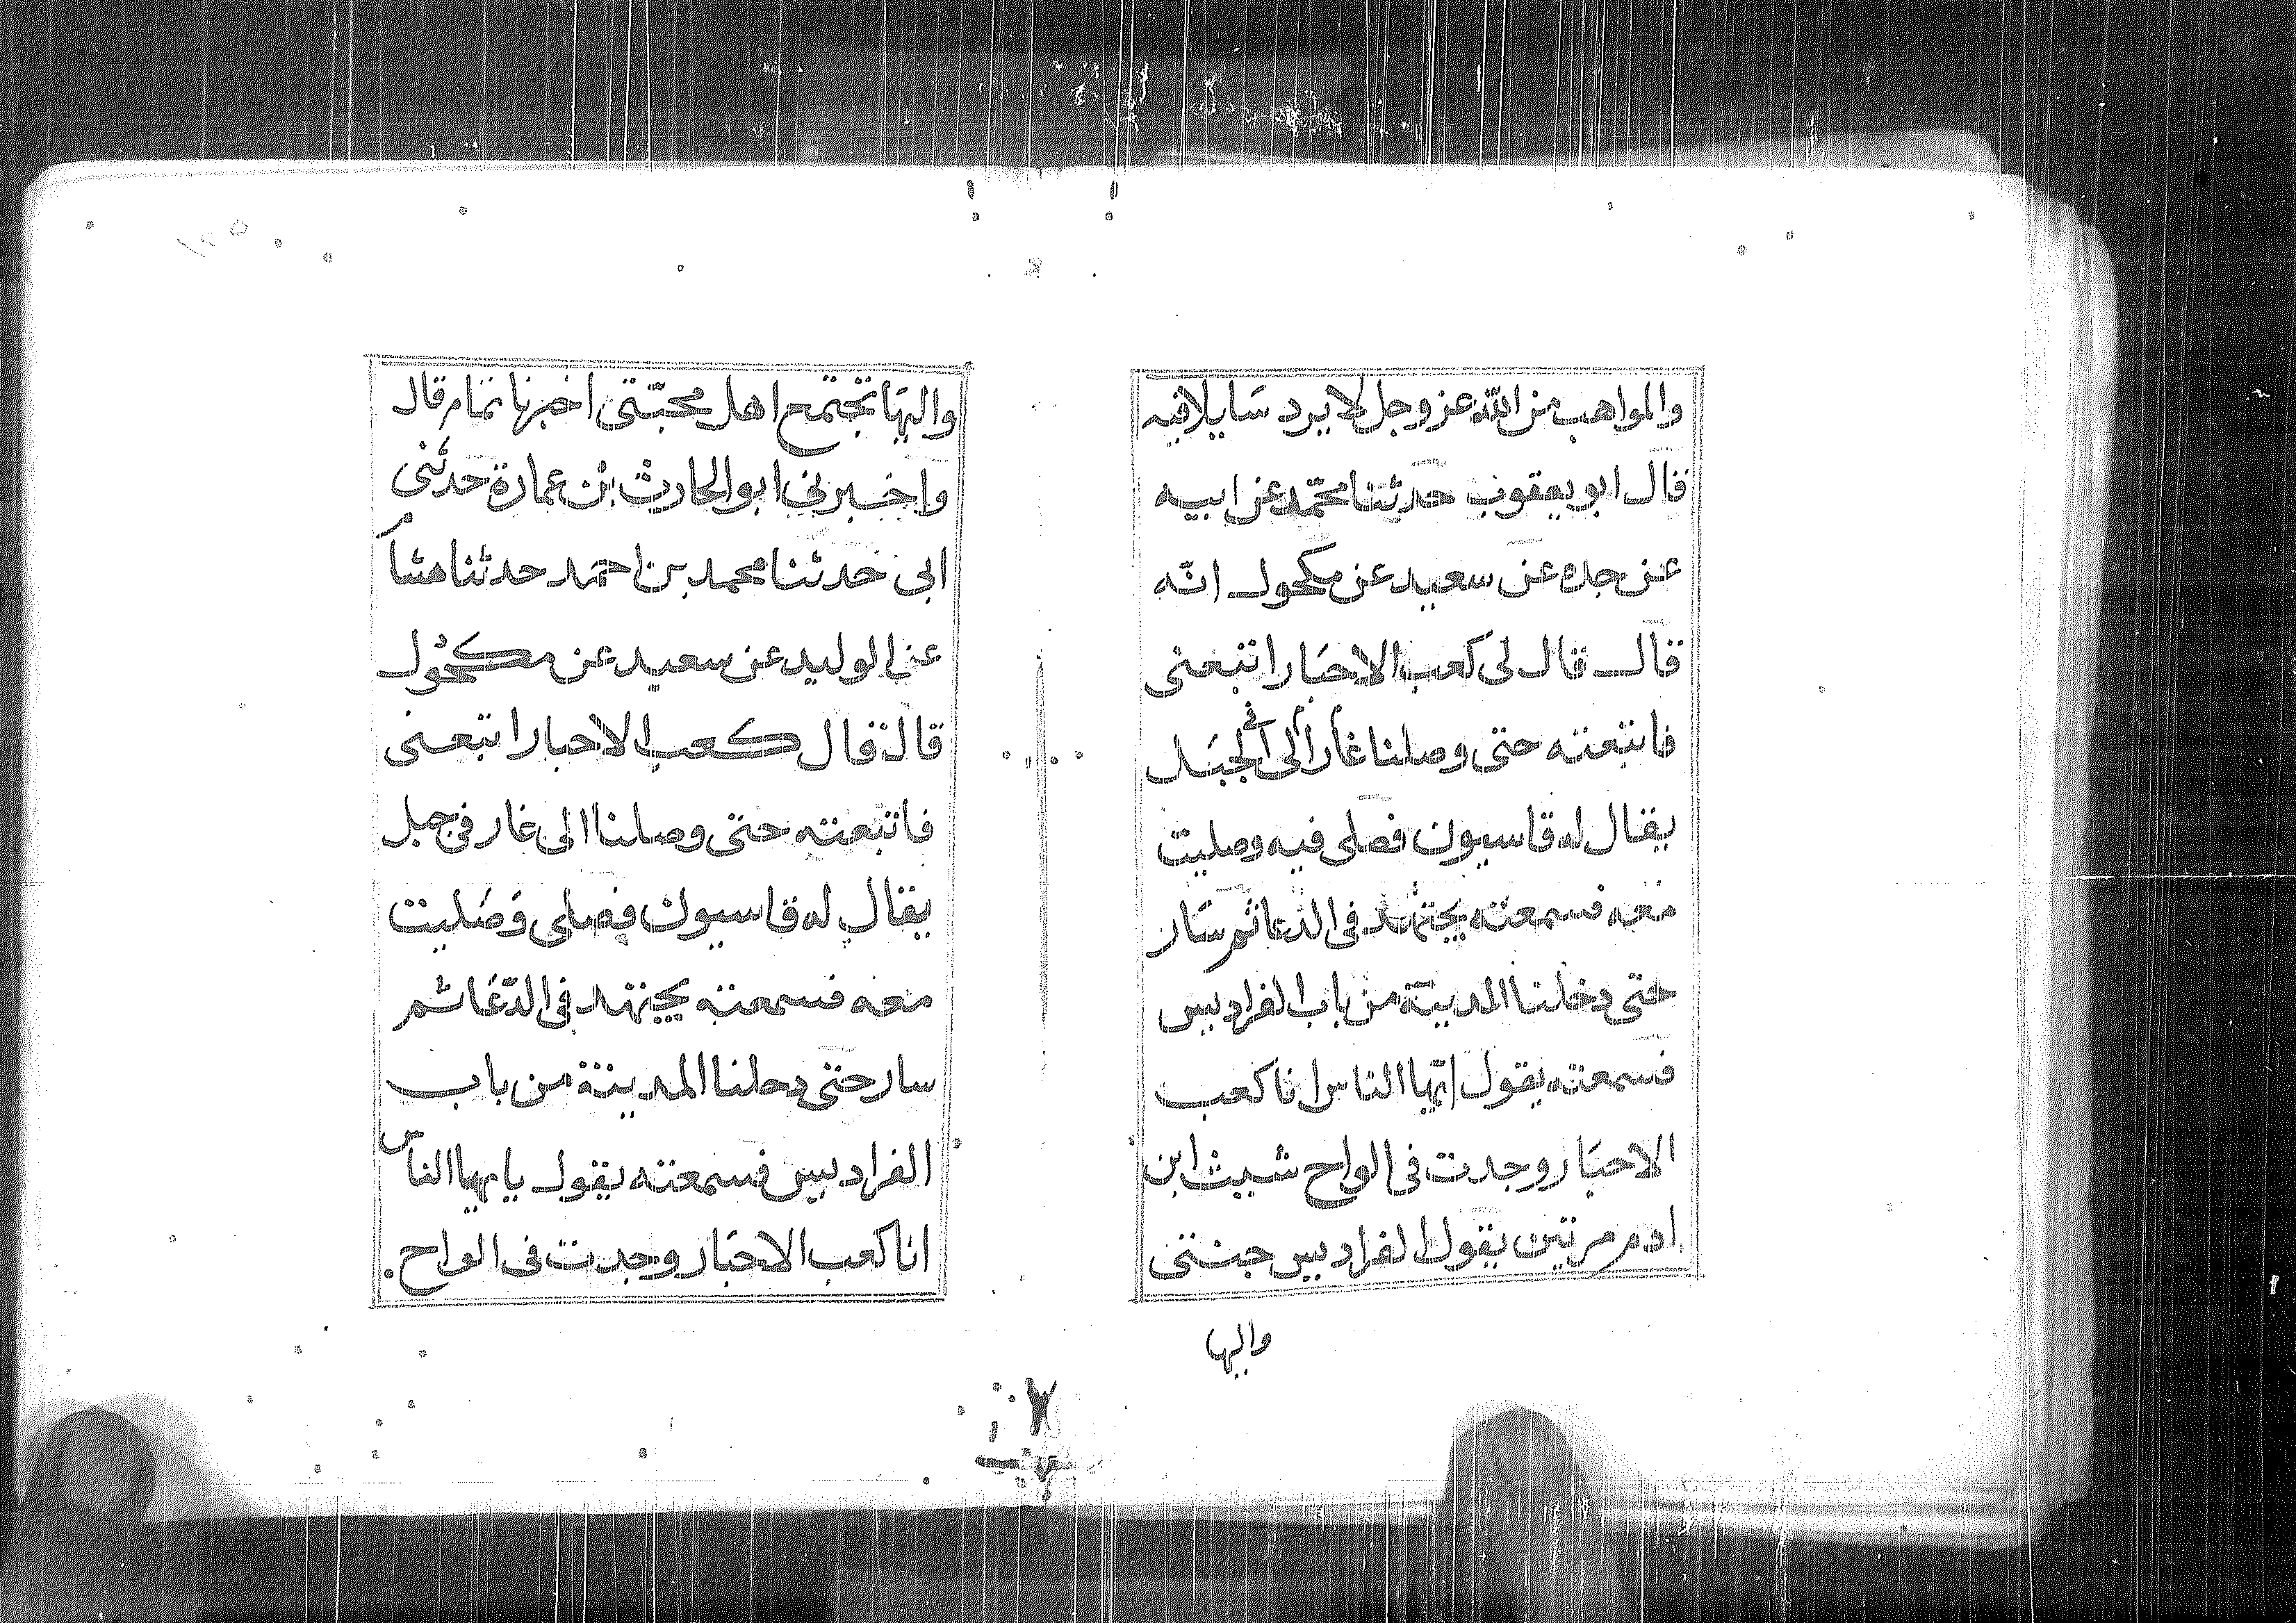 والمواهب من الله عز وجل لا يرد سايلا فيه
قال ابو يعقوب حدثنا محمد عن ابيه
عن جده عن سعيد عن مكحول انه
قال قال لى كعب الاحبار اتبعنى
فاتبعته حتى وصلنا غارا الى فى الجبل
يقال له قاسيون فصلى فيه وصليت
معه فسمعته يجتهد فى الدعا ثم سار
حتى دخلنا المدينة من باب الفراديس
فسمعته يقول ايها الناس انا كعب
الاحبار وجدت فى الواح شيث ابن
ادم مرتين يقول الفراديس جنتى
واليها
واليها تجتمع اهل محبتى اخبرنا تمام قال
واخبرني ابو الحارث بن عمارة حدثنى
ابى حدثنا محمد بن احمد حدثنا هشام
عن الوليد عن سعيد عن مكحول
قال قال كعب الاحبار اتبعنى
فاتبعته حتى وصلنا الى غار فى جبل
يقال له قاسيون فصلى وصليت
معه فسمعته يجتهد فى الدعا ثم
سار حتى دخلنا المدينة من باب
الفراديس فسمعته يقول يا يها الناس
انا كعب الاحبار وجدت فى الواح.